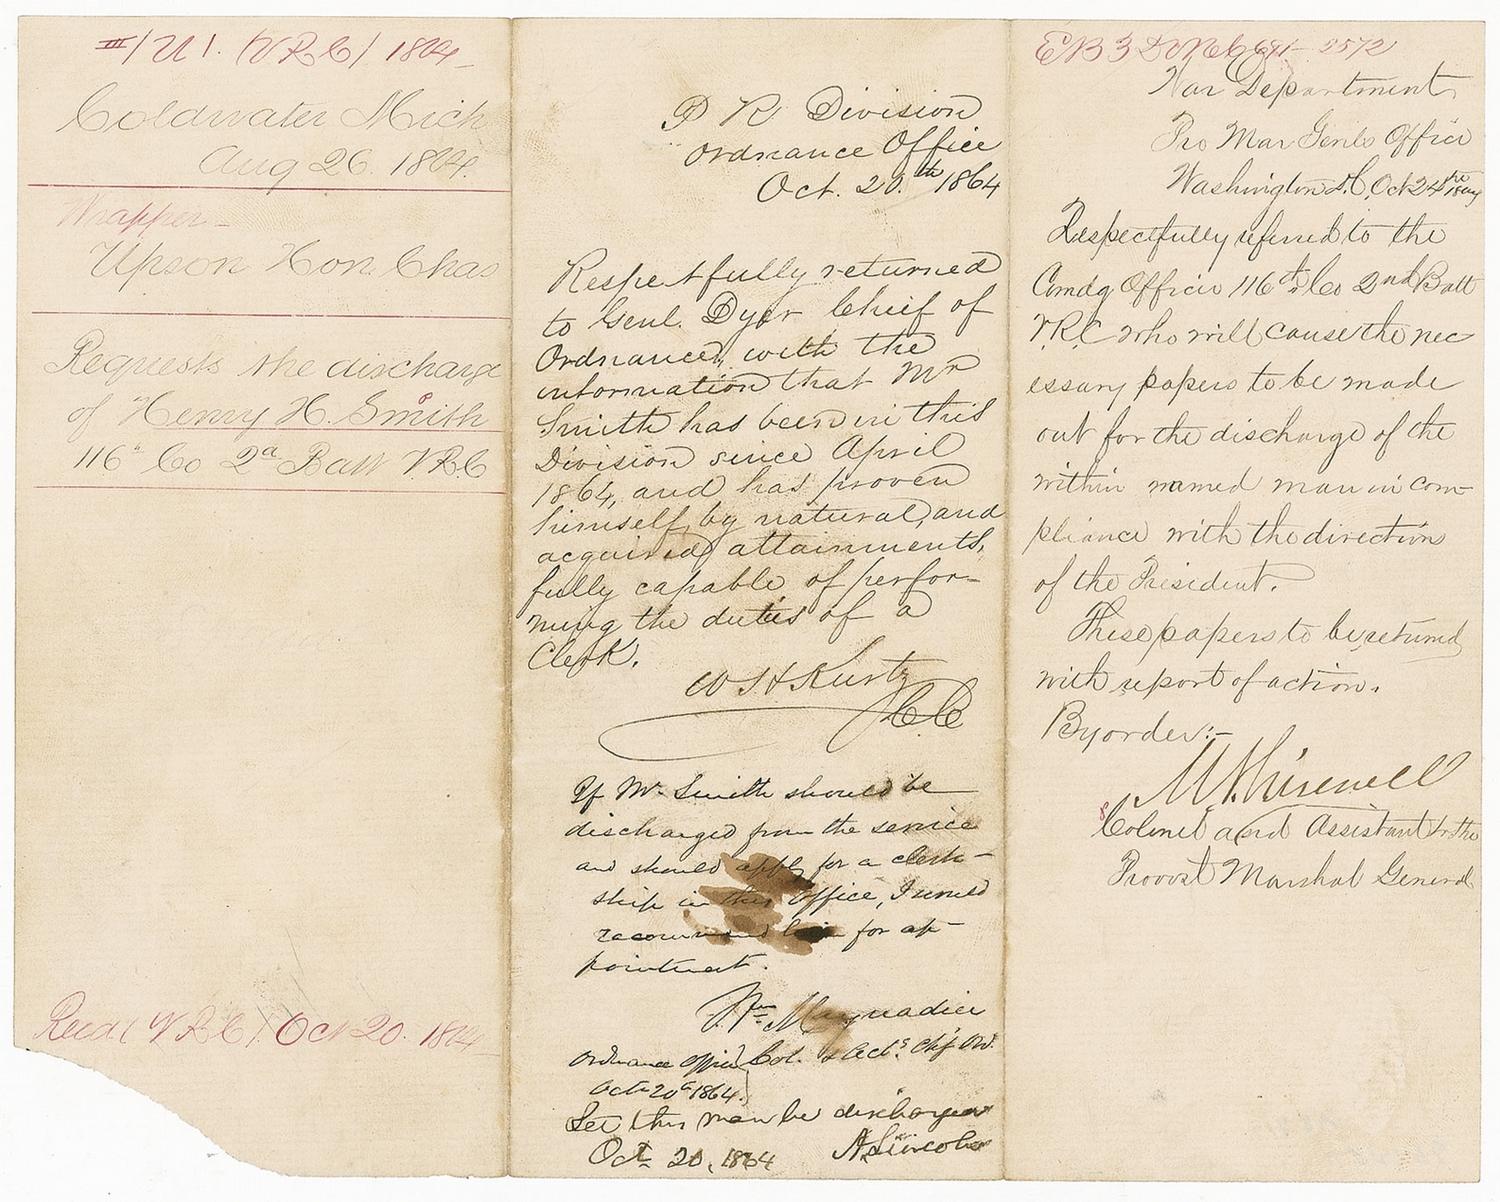 III/U 1. (V.R.C) 1864
Coldwater Mich
Aug 26. 1864.
Wrapper
Upson Hon. Chas
Requests the discharge
of Henry H. Smith
116" Co 2d Batt V.R.C
Recd. (V.R.C) Oct 20. 1864
P R Division
Ordnance Office
Oct. 20.th 1864
Respectfully returned
to Genl. Dyer Chief of
Ordnance, with the
information that Mr
Smith has been in this
Division since April
1864, and has proven
himself, by natural, and
acquired attainments,
fully capable of perfor-
ming the duties of a
Clerk.
W S H Kurtz
C.C
If Mr. Smith should be
discharged from the service
and should apply for a clerk-
ship in this office, I would
recommend him for ap-
pointment.
Wm Maynadier
Ordnance Office Col. & Actg. Chf Ord.
Oct. 20th 1864.
Let this man be discharged
Oct. 20, 1864 A. Lincoln
EB 3 691 2572
War Department,
Pro Mar Genls Office
Washington D.C, Oct 24th 1864
Respectfully referred to the
Comdg Officer 116th Co 2nd Batt
V.R.C who will cause the nec
essary papers to be made
out for the discharge of the
within named man in com-
pliance with the direction
of the President.
These papers to be returned
with report of action.
By order:-
Colonel and Assistant to the
Provost Marshal General